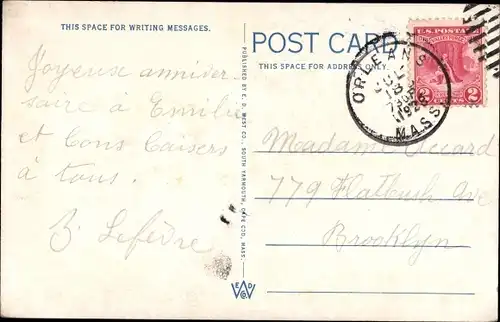 THIS SPACE FOR WRITING MESSAGES.
Joyeuse anniver-
saire à Emilie
et bons baisers
à tous.
B. Lefèvre
PUBLISHED BY E. D. WEST CO., SOUTH YARMOUTH, CAPE COD, MASS.
POST CARD
THIS SPACE FOR ADDRESS ONLY.
ORLEANS
JUL
18
MASS.
U.S. POSTAGE
2 CENTS 2
Madame Accard
779 Flatbush Ave
Brooklyn
E D
W
Co